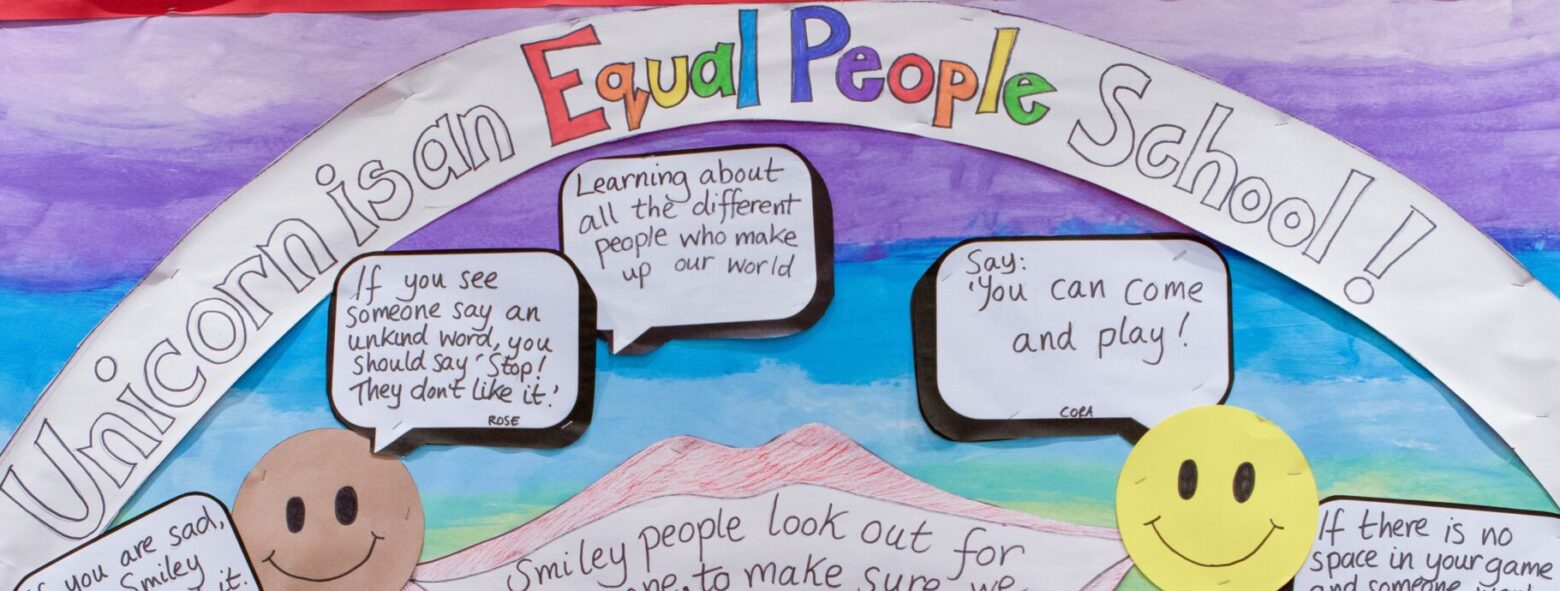 Unicorn is an Equal People School!
Learning about
all the different
people who make
up our world
If you see
someone say an
unkind word, you
should say 'Stop!
They don't like it.'
ROSE
Say:
'You can come
and play!
CORA
you are sad,
Smiley
it.
Smiley people look out for
to make sure we
If there is no
space in your game
and someone